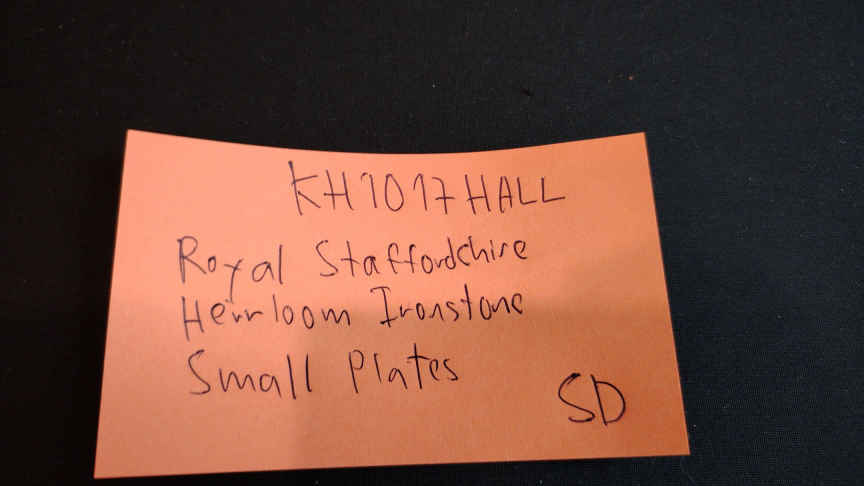 KH1017HALL
Royal Staffordchire
Heirloom Ironstone
Small Plates
SD